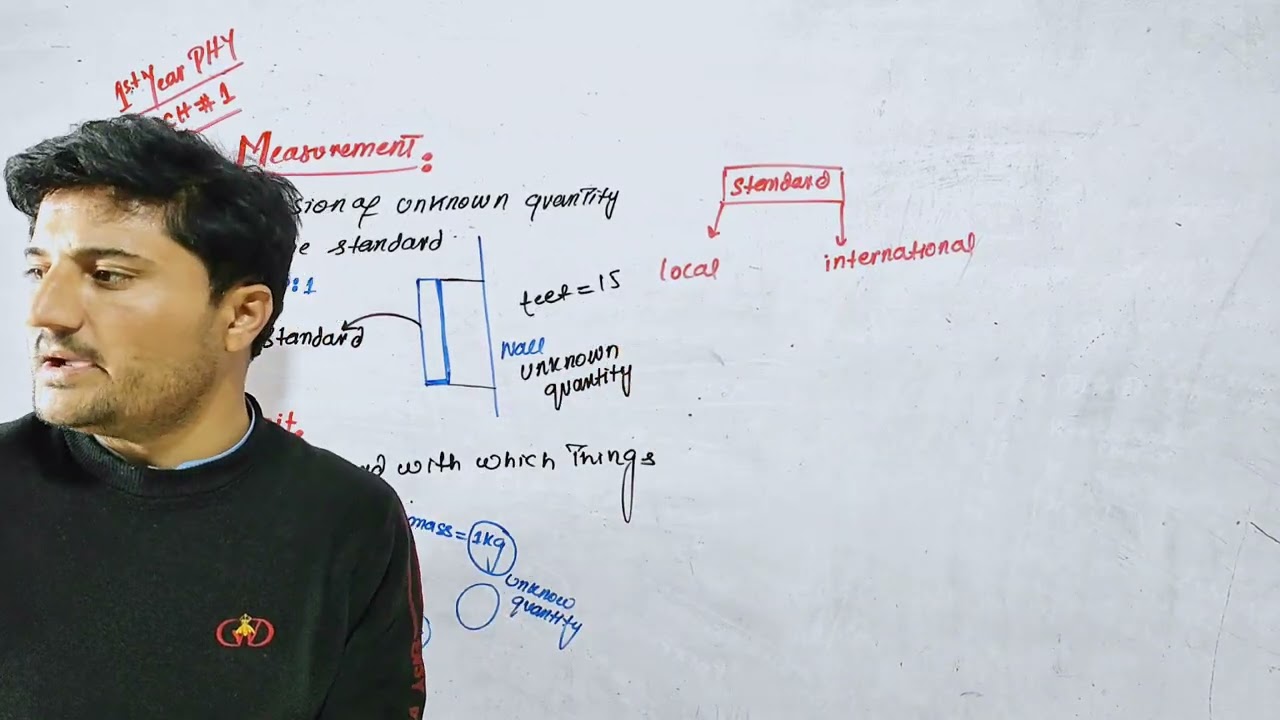 1st Year PHY
CH # 1
Measurement:
sion of unknown quantity
e standard
: 1
standard
feet = 15
Wall
unknown
quantity
it
d with which Things
mass = 1kg
unknow
quantity
standard
local
international